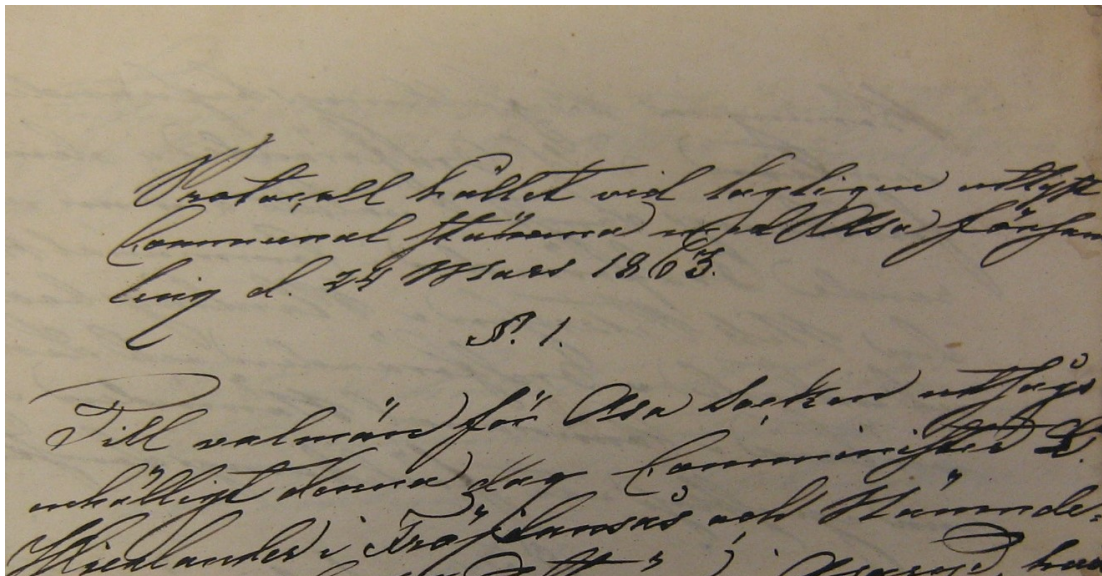 Protocoll hållet vid lagligen utlyst
Communal stämma med Asa försam
ling d. 24 Mars 1863.
S. 1.
Till valmän för Asa Socken utsågs
enhälligt denna dag Comminister L.
i och Nämnde-
i